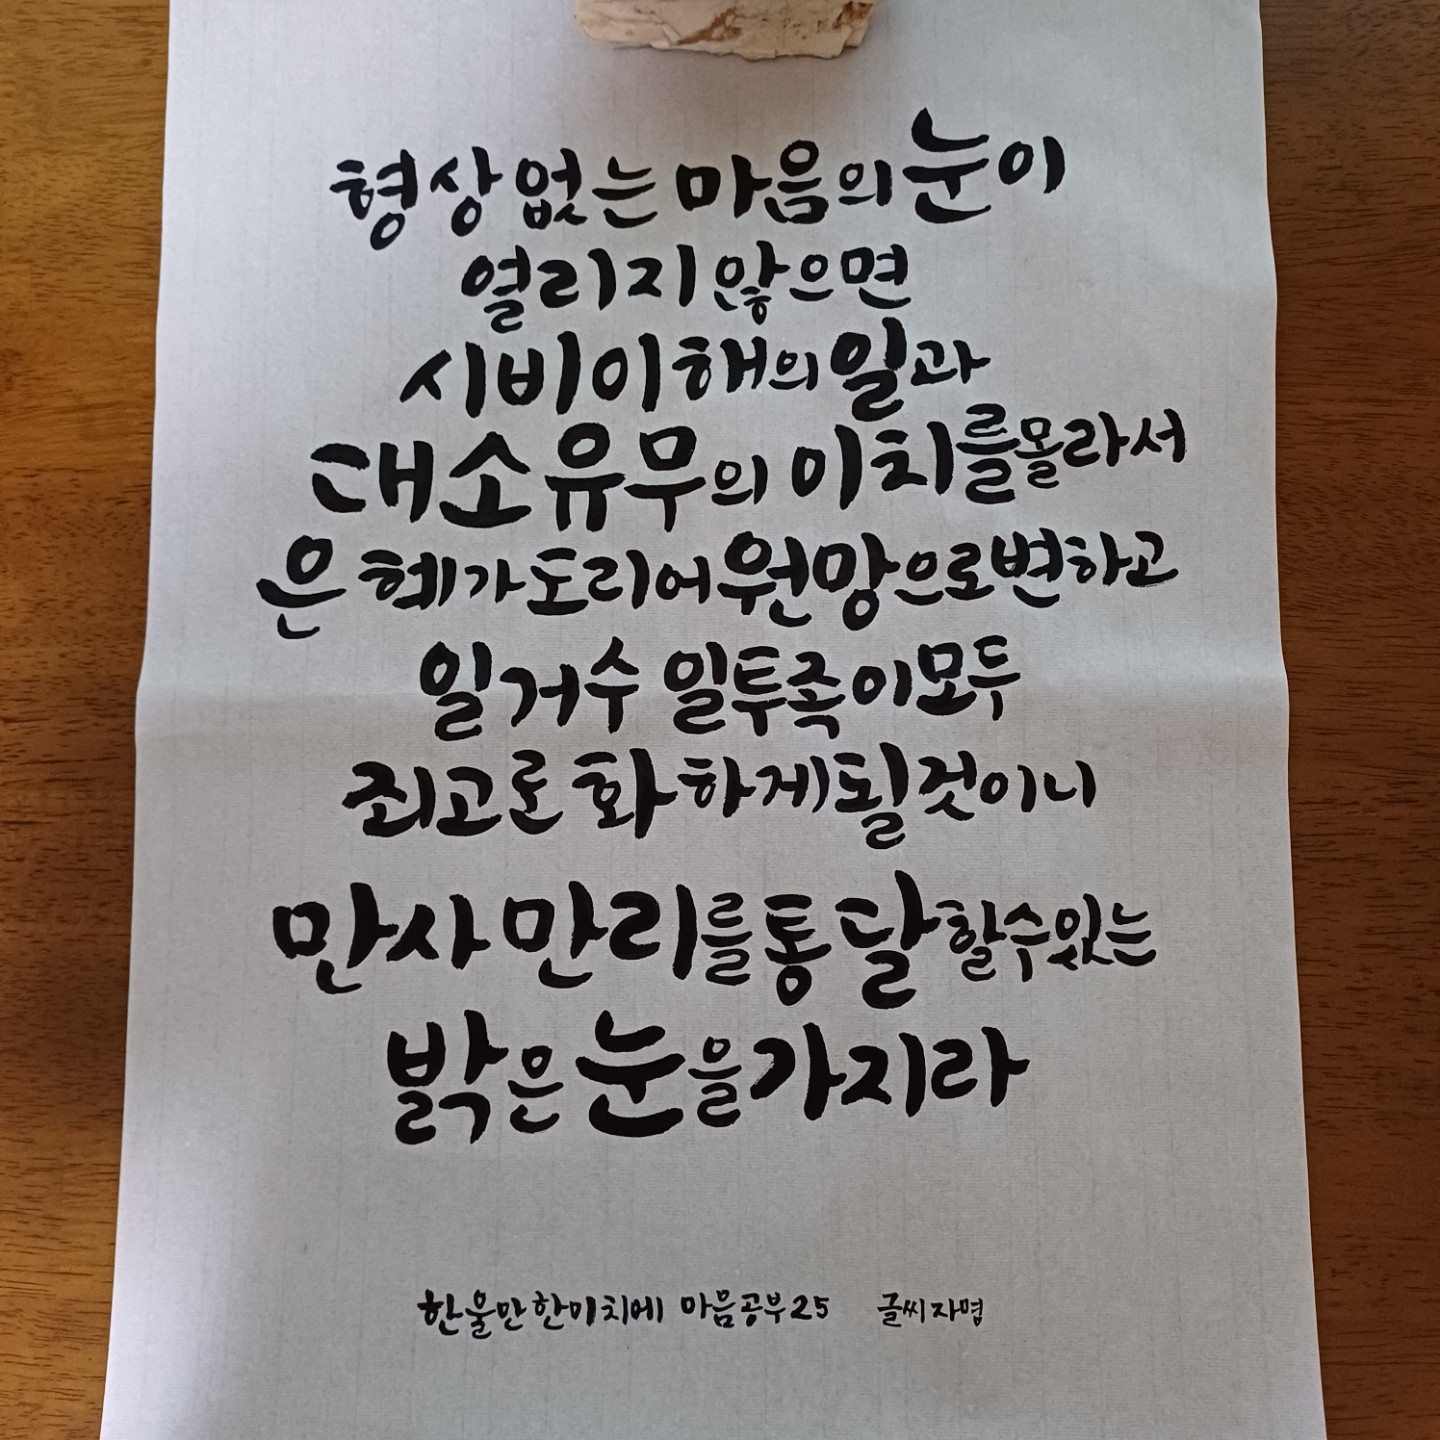 형상 없는 마음의 눈이
열리지 않으면
시비이해의 일과
대소유무의 이치를 몰라서
은혜가 도리어 원망으로 변하고
일거수 일투족이 모두
죄고로 화하게 될 것이니
만사 만리를 통달할 수 있는
밝은 눈을 가지라
한울안 한이치에 마음공부 25 글씨 자명